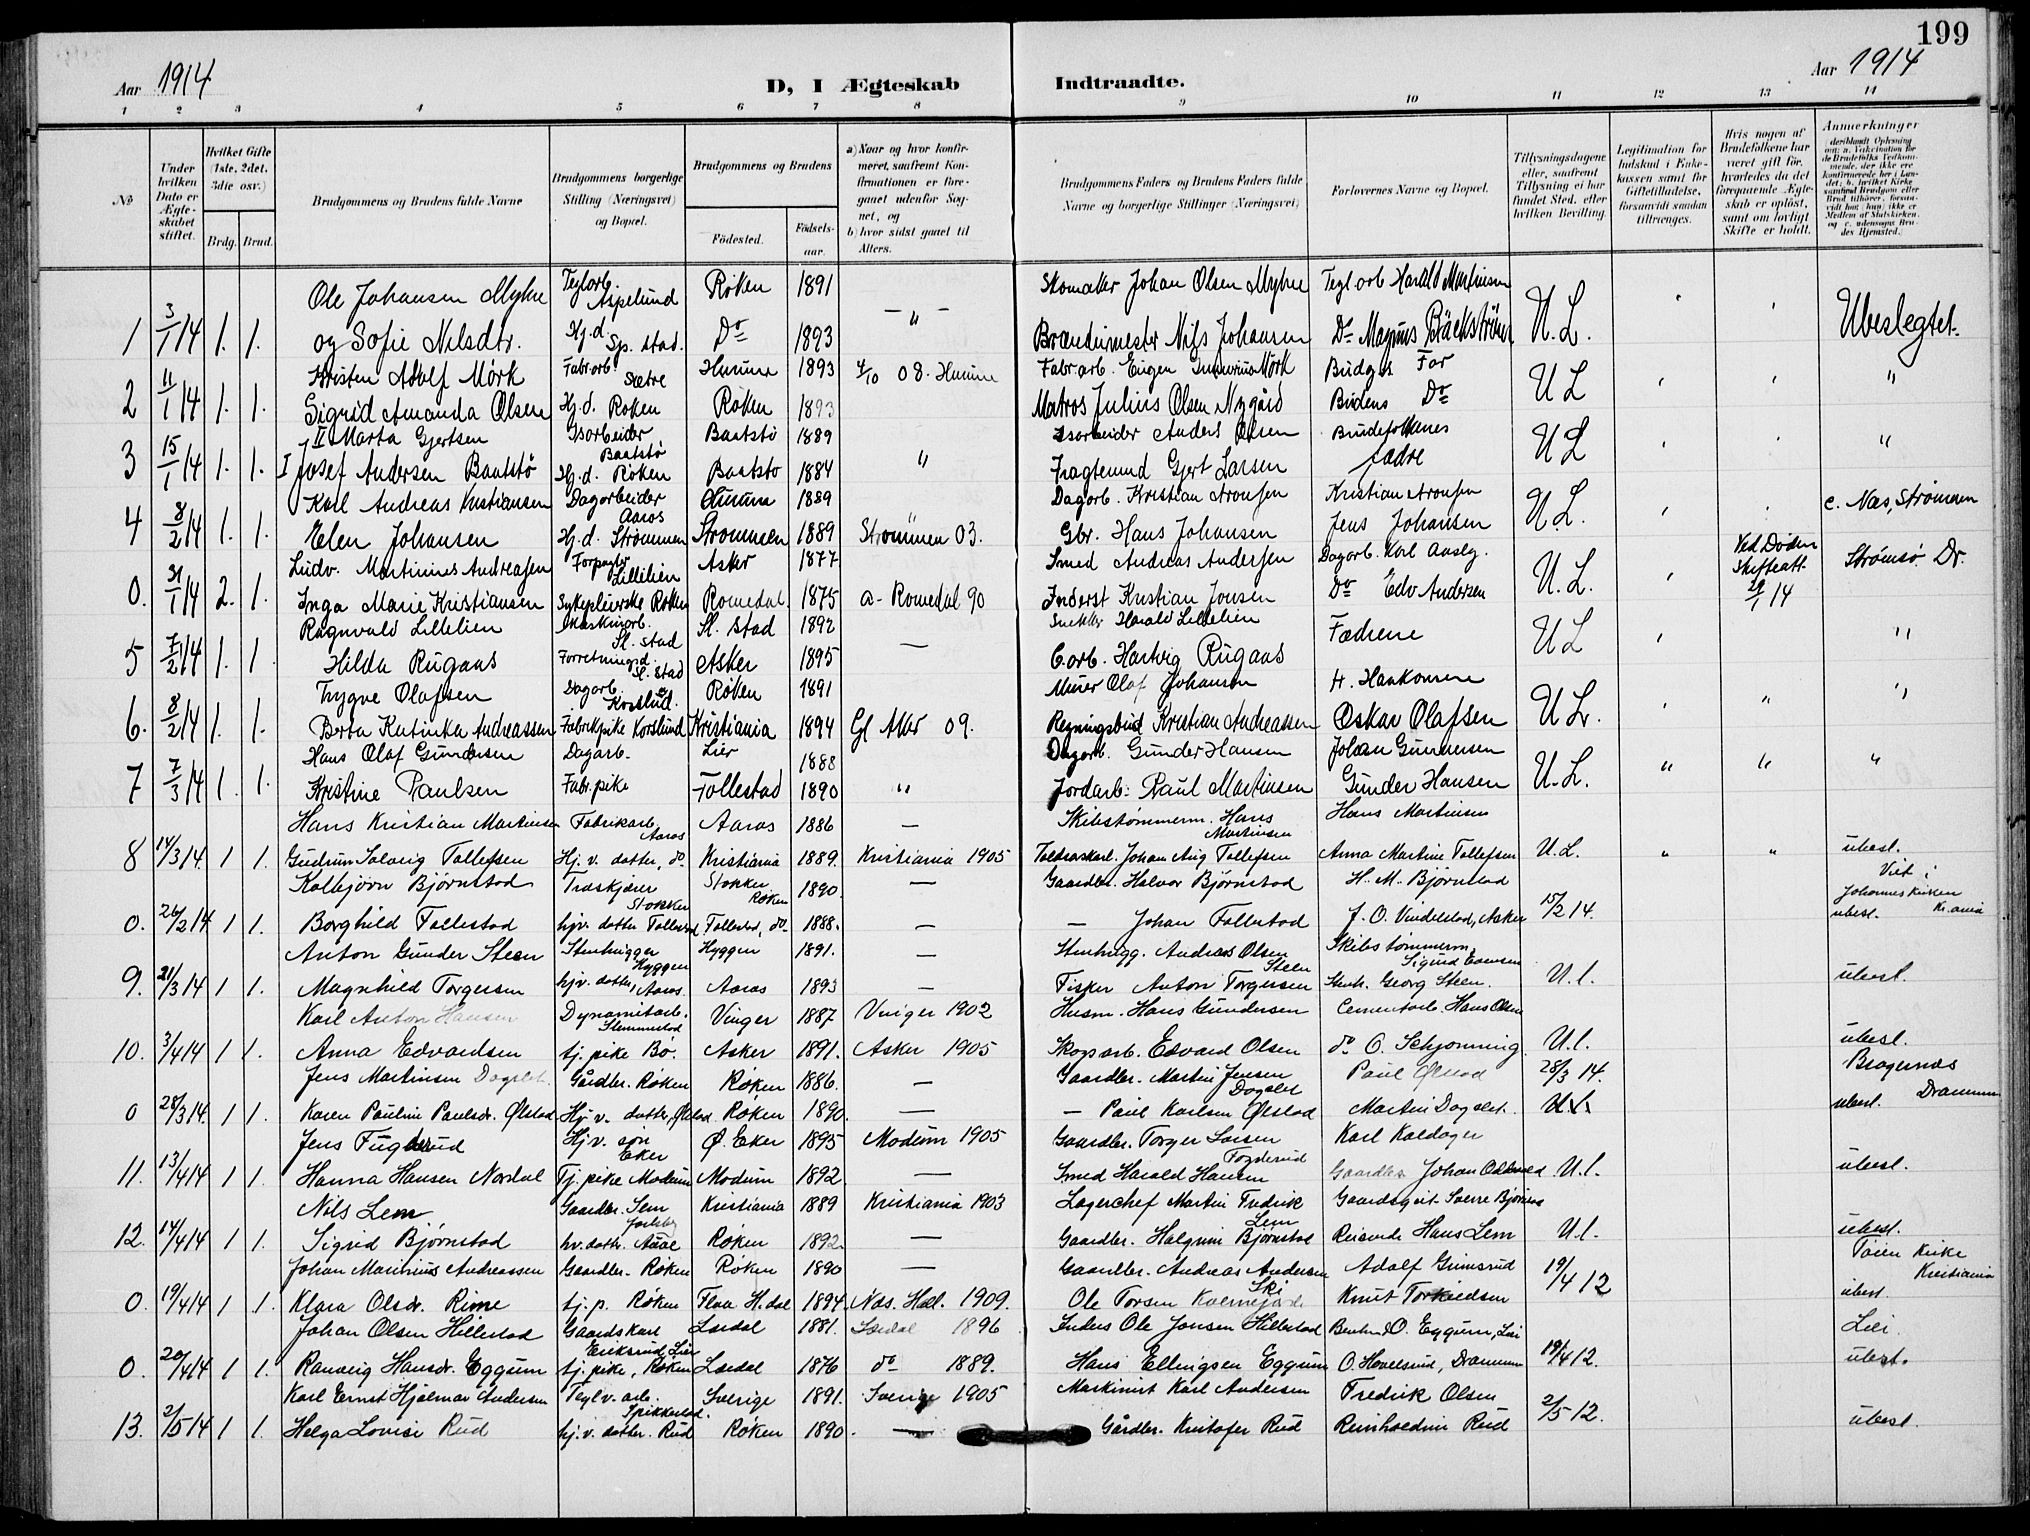 199
Aar 1914
D, I Ægteskab Indtraadte.
Aar 1914
1 2 3 4 5 6 7 8 9 10 11 12 13 14
No
Under hvilken Dato er Ægteskabet stiftet.
Hvilket Gifte (1ste, 2det, 3die osv.)
Brdg. Brud.
Brudgommens og Brudens fulde Navne
Brudgommens borgerlige Stilling (Næringsvei) og Bopæl.
Brudgommens og Brudens
Födested.
Födselsaar.
a) Naar og hvor konfirmeret, saafremt Konfirmationen er foregaaet udenfor Sognet, og
b) hvor sidst gaaet til Alters.
Brudgommens Faders og Brudens Faders fulde Navne og borgerlige Stillinger (Næringsvei)
Forlovernes Navne og Bopæl.
Tillysningsdagene eller, saafremt Tillysning ei har fundet Sted, efter hvilken Bevilling.
Legitimation for Indskud i Enkekassen samt for Giftetilladelse, forsaavidt saadan tiltrænges.
Hvis nogen af Brudefolkene har været gift för, hvorledes da det foregaaende Ægteskab er oplöst, samt om lovligt Skifte er holdt.
Anmerkninger
Ole Johansen Myhre Teglarb. Aspelund Röken 1891 Skomaker Johan Olsen Myhre Teglarb Harald Martinsen
1 3/1 14 1. 1. og Sofie Nilsdtr. Hj.d. Sp. stad. Do 1893 Brændimester Nils Johansen Do Magnus Bäckström U.L. Ubeslegtet.
Kristen Adolf Mörk Fabr.arb. Sætre Hurum 1893 4/10 08. Hurum Fabr.arb. Eugen Mörk Budgs Far
2 11/1 14 1. 1. Sigrid Amanda Olsen Hj.d. Röken Röken 1893 Matros Julius Olsen Nygård Brudens Do U L "
II Marta Gjertsen Isarbeider Baatstö Baatstö 1889 Isarbeider Anders Olsen Brudefolkenes
3 15/1 14 1. 1. I Josef Andersen Baatstö Hj.d. Röken Baatstö 1884 " Fragtemand Gjert Larsen fædre U L "
Karl Andreas Kristiansen Dagarbeider Aaros Hurum 1889 Dagarb. Kristian Aronsen Kristian Aronsen
4 8/2 14 1. 1. Elen Johansen Hj.d. Strömmen Strommen 1889 Strömmen 03. Gbr. Hans Johansen Jens Johansen U L. c. Næs, Strömmen
Ludv. Martinius Andreasen Forpagter Lillelien Asker 1877 Smed Andreas Andersen Dagarb. Karl Ved Döden Skifteatt.
0. 31/1 14 2. 1. Inga Marie Kristiansen Sykepleierske Röken Romedal 1875 a- Romedal 90 Inderst Kristian Jonsen Do Edv Andersen U.L. 29/1 14 Strømsø Dr.
Ragnvald Lillelien Maskinarb. Sl. stad Sl. stad 1892 Harald Lillelien Fædrene
5 7/2 14 1. 1 Hilda Rugaas Forretningsd. Sl. stad Asker 1895 — C.arb. Hartvig Rugaas U L "
Trygve Olafsen Dagarb. Korslund Röken 1891 Murer Olaf Johansen H. Haakonsen
6. 8/2 14 1. 1. Berta Katinka Andreassen Fabrikpike Korslund Kristiania 1894 Gl Aker 09. Regningsbud Kristian Andreassen Oskar Olafsen U L. " "
Hans Olaf Gundersen Dagarb. Lier 1888 Dagarb. Gunder Hansen Johan Gundersen
7 7/3 14 1. 1. Kristine Paulsen Fabr.pike Follestad 1890 " Jordarb: Paul Martinsen Gunder Hansen U.L. " " "
Hans Kristian Martinsen Fabrikarb. Aaros Aaros 1886 — Skibstømmerm. Hans Martinsen Hans Martinsen
8 14/3 14. 1 1. Gudrun Solveig Tollefsen Hj. v. datter, do. Kristiania 1889. Kristiania 1905 Johan Aug Tollefsen Anna Martine Tollefsen U.L. " " ubesl.
Kolbjörn Bjørnstad Traskjærer Stokker Stokker Røken 1890. — Gaardbr. Halvor Bjørnstad H. M. Bjørnstad Viet i Johanneskirken Kr.ania
0. 26/2 14 1 1. Borghild Follestad hjv. datter Follestad Follestad, do 1888. — — Johan Follestad J. O. Vindelstad, Asker 15/2 14. ubesl.
Anton Gunder Steen Stenhugger Hyggen Hyggen 1891. — Stenhugg. Andreas Olsen Steen Skibstømmerm. Sigurd
9. 21/3 14 1 1. Magnhild Torgersen hjv. datter, Aaros Aaros 1893 — Fisker Anton Torgersen Stenh. Georg Steen. U.l. ubesl.
Karl Anton Hansen Dynamitarb. Slemmestad Vinger 1887 Vinger 1902 Husm. Hans Gundersen Cementarb. Hans Olsen
10. 3/4 14 1 1. Anna Edvardsen tj. pike Bø. Asker 1891. Asker 1905 Skogsarb. Edvard Olsen do O. Schjønning U.l. ubesl.
Jens Martinsen Dagslet Gårdbr. Røken Røken 1886. — Gaardbr. Martin Jensen Dagslet Paul Ølstad 28/3 14. Bragernæs Drammen
0 28/3 14. 1 1. Karen Pauline Paulsdr. Ølstad Hj.v. datter, Ølstad Røken 1890. — — Paul Karlsen Ølstad Martin Dagslet. U.l. ubesl.
Jens Fugderud Hj.v. søn Eker Ø. Eker 1895 Modum 1905 Gaardbr. Torger Larsen Fugderud Karl Kaldager
11. 13/4 14 1 1. Hanna Hansen Nordal Tj. pike Modum Modum 1892. — Smed Harald Hansen Gaardbr. Johan U.l. ubesl.
Nils Lem Gaardbr. Sem Jarlsberg Kristiania 1889 Kristiania 1903 Lagerchef Martin Fredrik Lem
12. 14/4 14 1 1. Sigrid Bjørnstad hv. datter. Aaal Røken 1892. — Gaardbr. Halgrim Bjørnstad Reisende Hans Lem U.l. ubesl.
Johan Marthinius Andreassen Gaardbr. Røken Røken 1890 — Gaardbr. Andreas Andersen Ski Adolf Grimsrud Tøien Kirke Kristiania
0. 19/4 14 1 1. Klara Olsdr. Rime tj. p. Røken Flaa H.dal 1894. Nas. Hall. 1909. Ole Torsen Knut Torkildsen 19/4 12 ubesl.
Johan Olsen Hillestad Gaardskarl Eriksrud, Lier Lærdal 1881. Lærdal 1896 Inders Ole Jonsen Hillestad O. Eggum, Lier Lier
0. 20/4 14 1 1. Ranveig Hansdr. Eggum tj. pike, Røken Lærdal 1876 do 1889. Hans Ellingsen Eggum O. Havelsrud, Drammen 19/4 12. ubesl.
Karl Ernst Hjalmar Andersen Teglv. arb. Spikkestad. Sverige 1891. Sverige 1905 Maskinist Karl Andersen Fredrik Olsen
13. 2/5 14 1 1. Helga Lovise Rud hj.v. datter. Rud Røken 1890. — Gårdbr. Kristofer Rud Reinholdine Rud 2/5 12. ubesl.